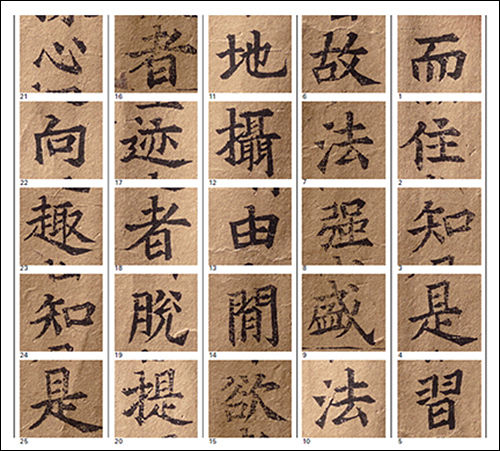 而 1 住 2 知 3 是 4 習 5
故 6 法 7 强 8 盛 9 法 10
地 11 攝 12 由 13 間 14 欲 15
者 16 迹 17 者 18 脫 19 提 20
心 21 向 22 趣 23 知 24 是 25